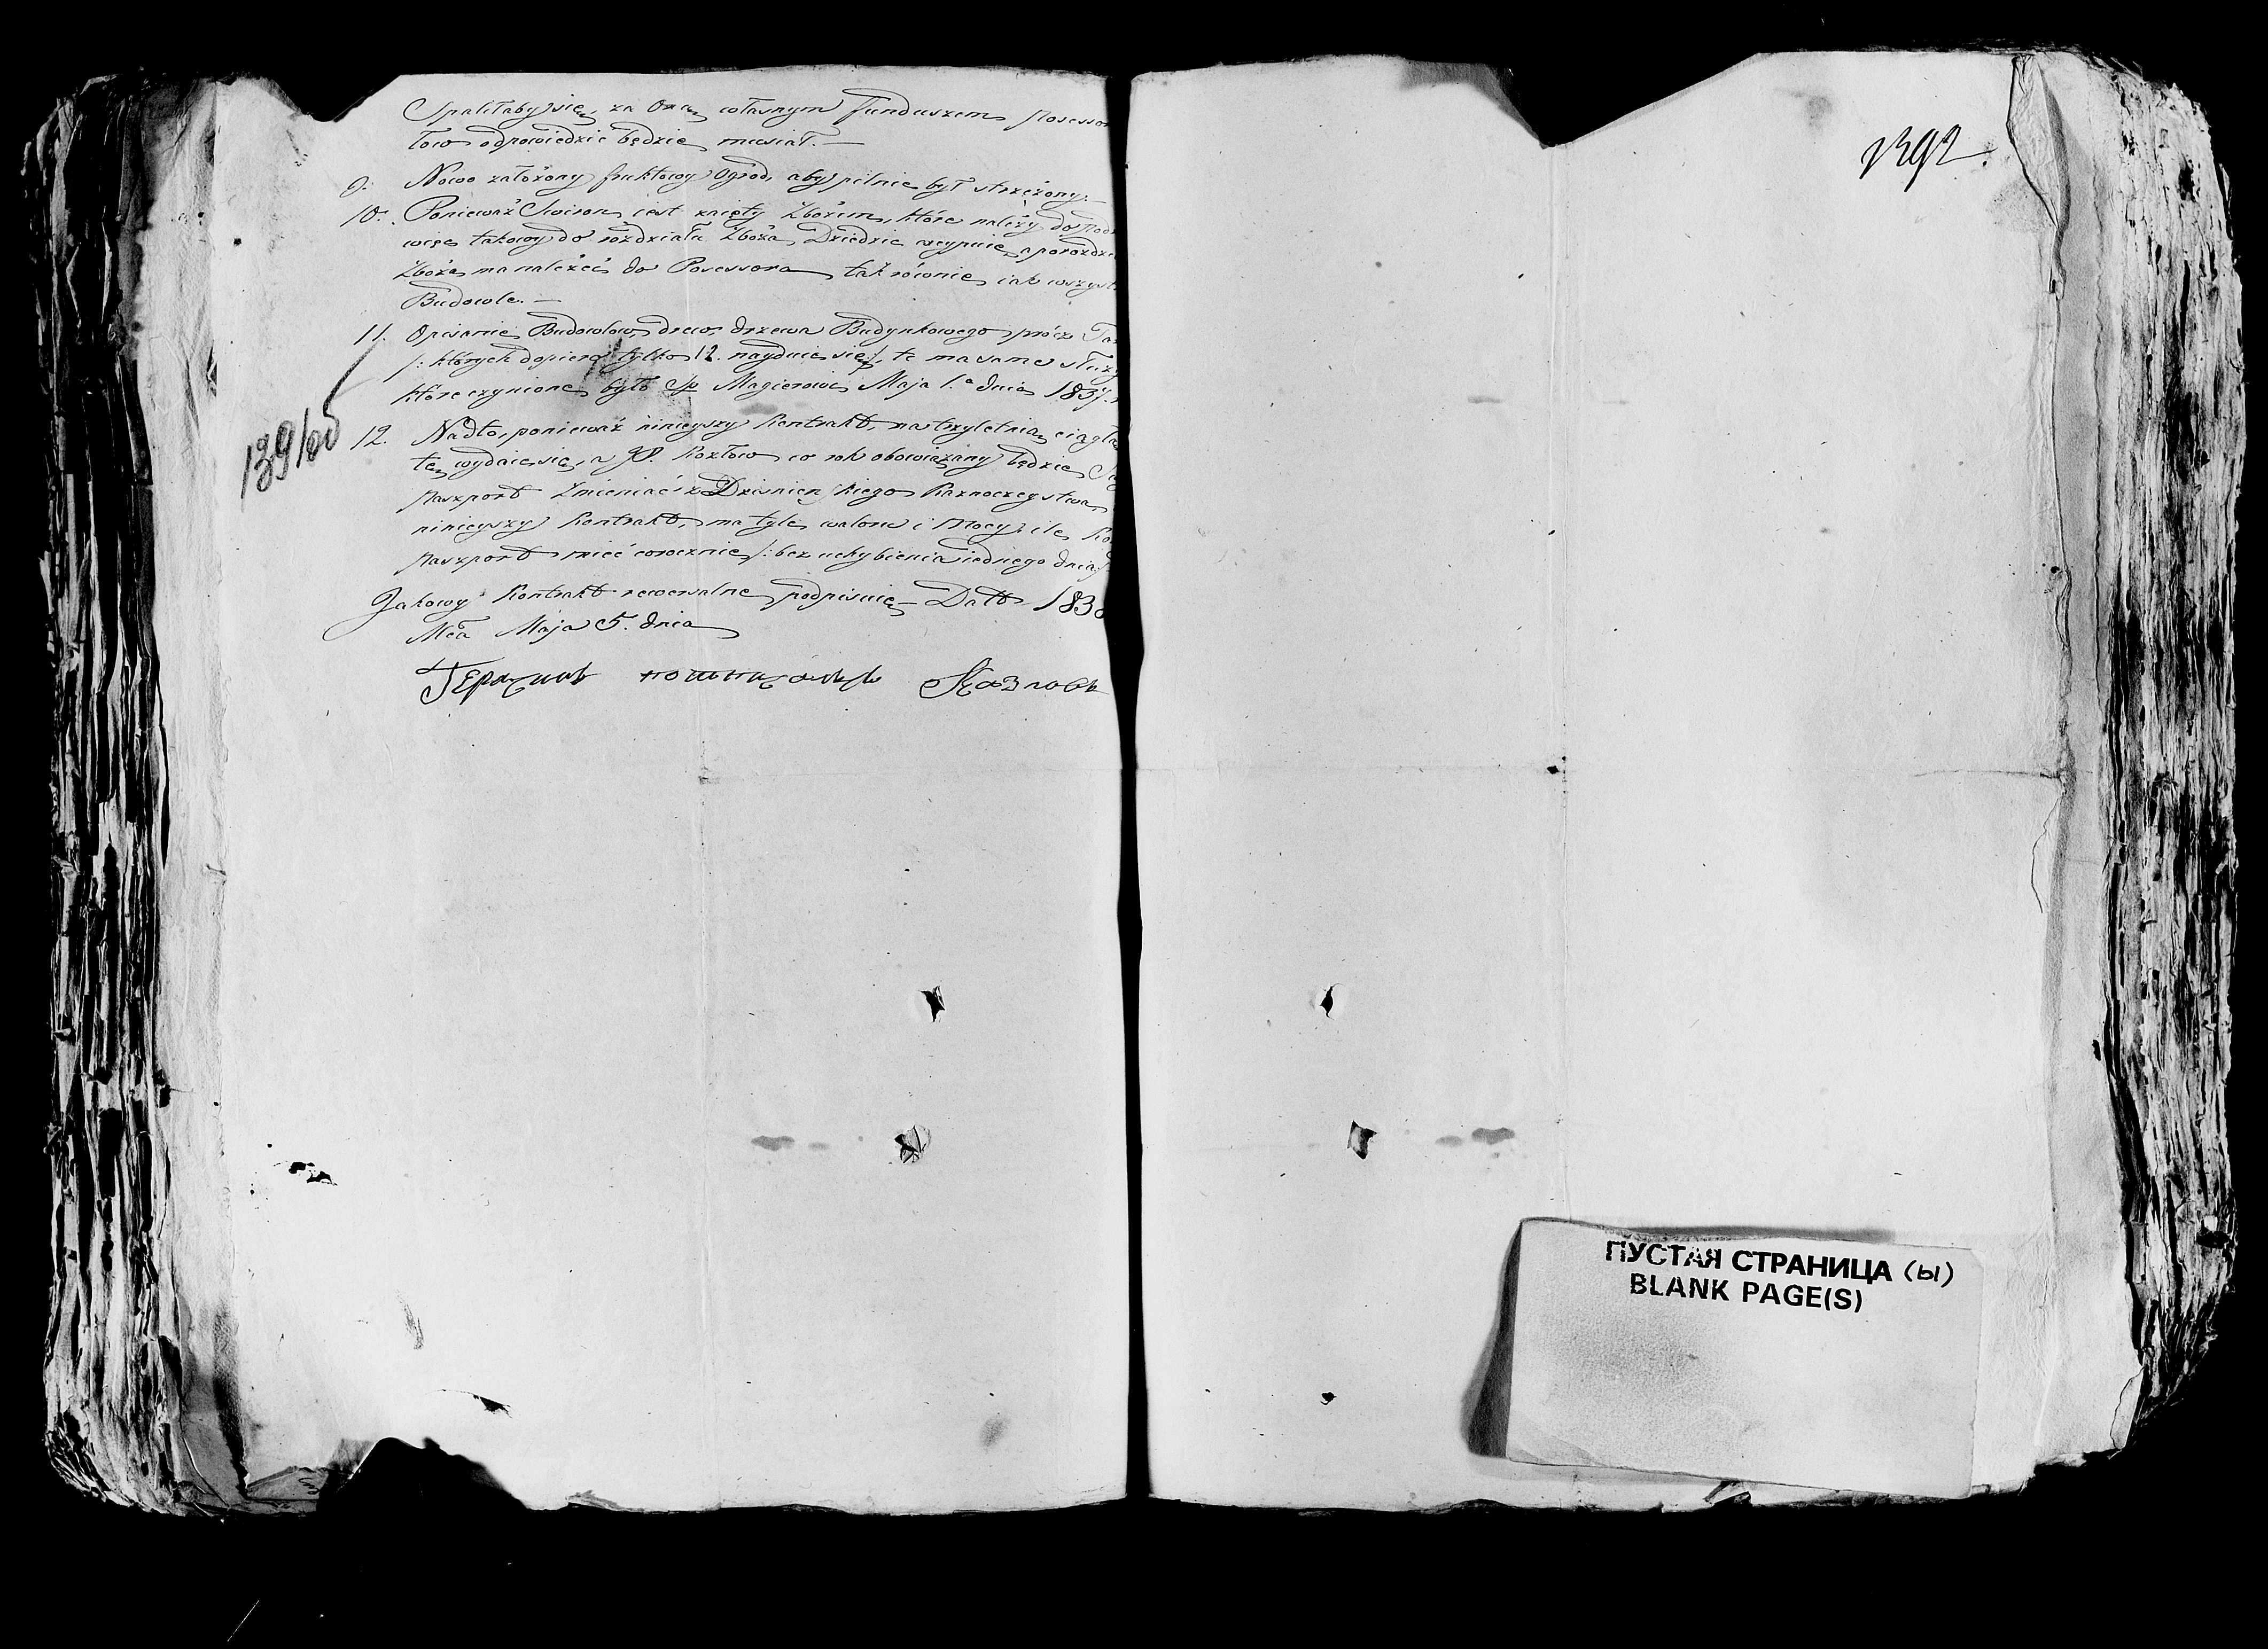 Spaliłaby się, za Onę własnym funduszem Possessor
łow odpowiedzić będzie musiał. —
9. Nowo założony fruktowy Ogrod, aby pilnie był strzeżony. —
10. Ponieważ Swiron jest zaięty Zbożem, które należy do
więc takowy do rozdziału Zboża, Dziedzic
Zboża ma należeć do Possessora tak równie iak wszyst
Budowle. —
11. Opisanie Budowlow, drew drzewa Budynkowego prócz
/: których dopiero tylko 12. nayduie się :/ te ma same służy
które czynione było w Magierowie Maja 1.a dnia 1837.
139 об
12. Nadto, ponieważ ninieyszy Kontrakt, na trzyletnią ciągła
tę wydaie się, a JP. Kozłow co rok obowiązany będzie
Paszport Zmieniać z Dzisnieńskiego Kaznaczeystwa
ninieyszy Kontrakt, ma tyle waloru i Mocy, ile
Paszport mieć corocznie /: bez uchybienia iednego dnia
Jakowy Kontrakt rewersalne podpisuię — Datt 1838
Mca Maja 5. dnia
Козловъ
1392.
ПУСТАЯ СТРАНИЦА (Ы)
BLANK PAGE(S)